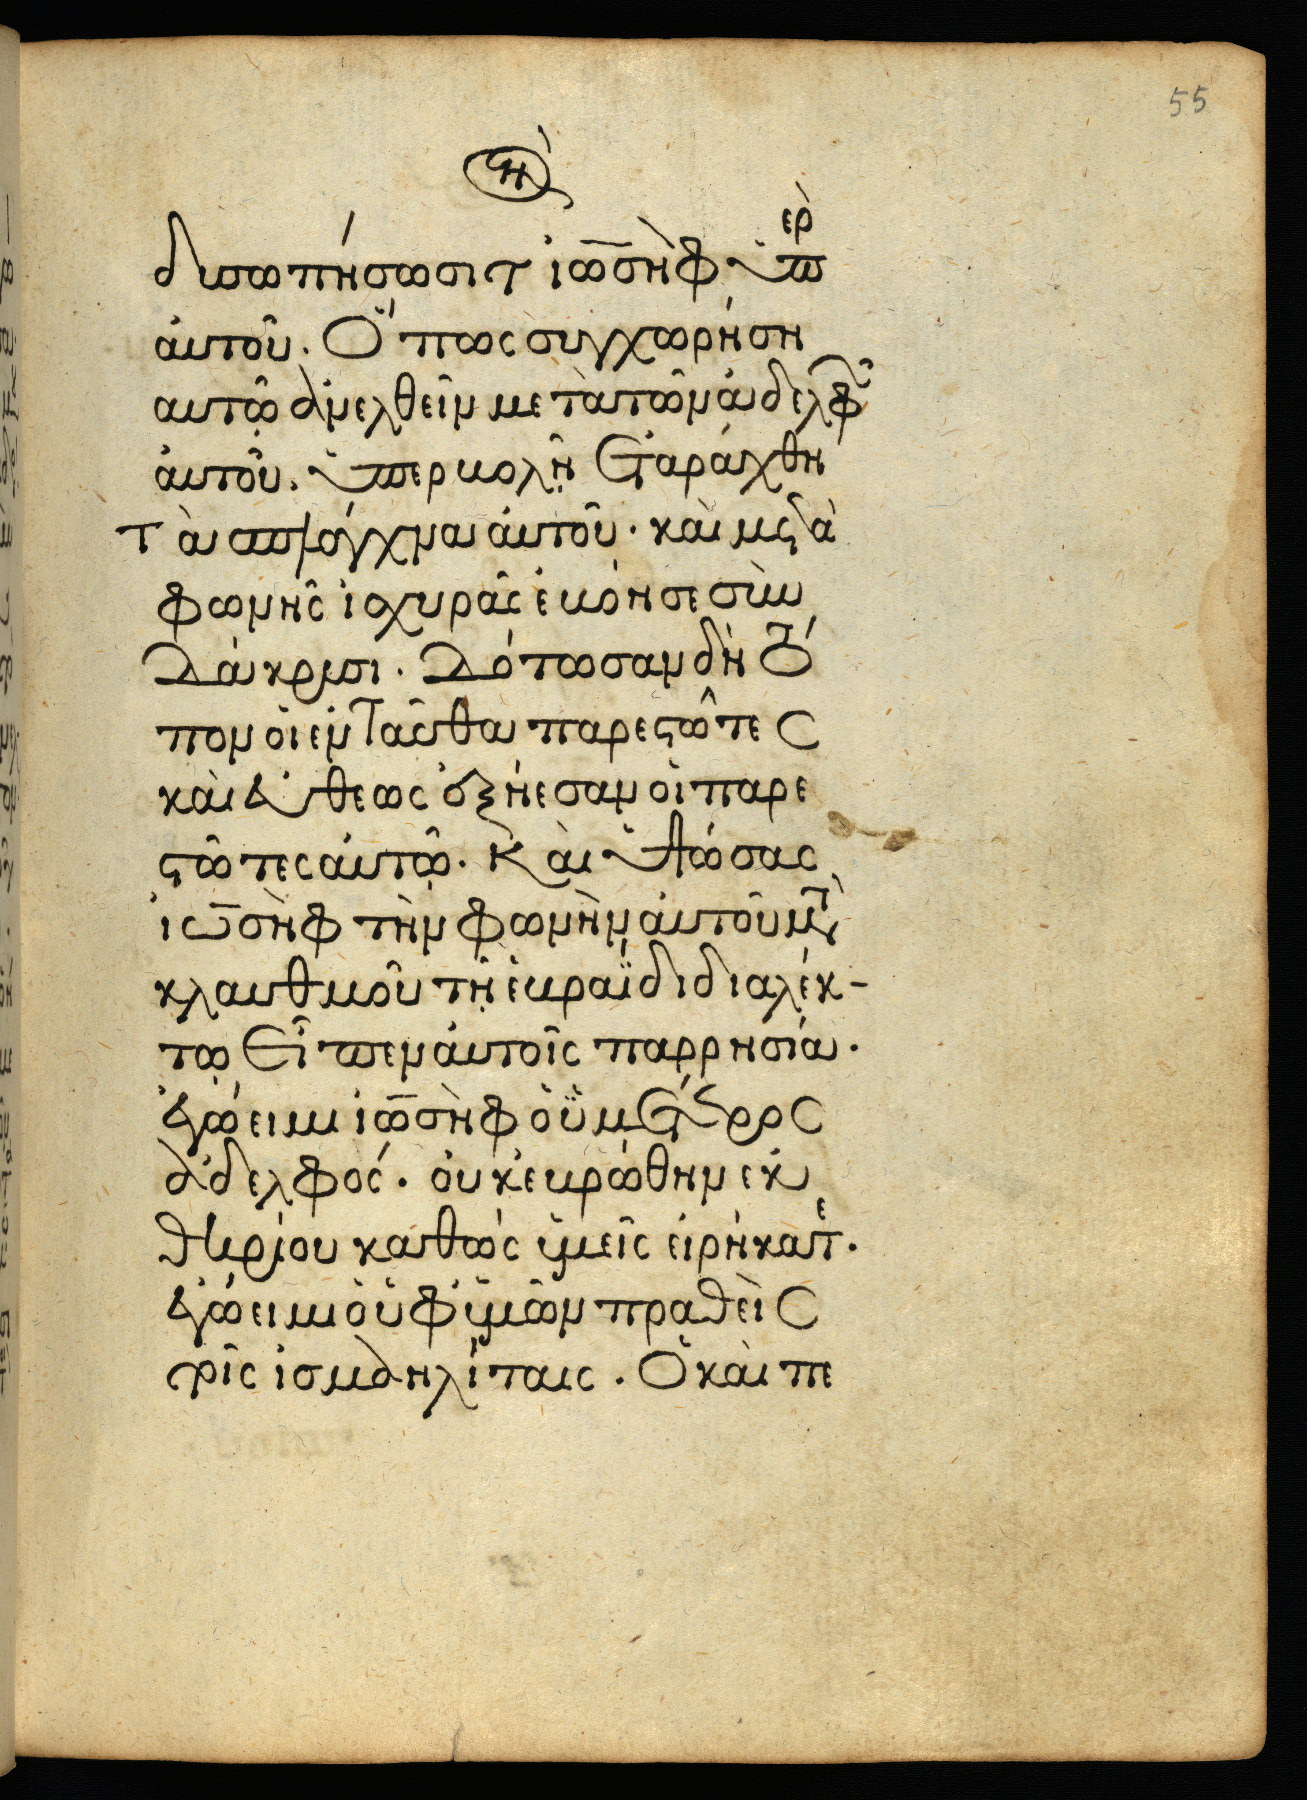 55
η
δυσωπήσωσι τ ἰω̄σὴφ ὑπερ
ἀυτοῦ. Ὅπως συγχωρήση
αυτῶ ἀνελθεῖν μετὰ τῶν ἀδελφῶ
ἀυτοῦ. ὑπερκολῆ Ἐταράχθη
τὰ σπλάγχνα ἀυτοῦ. καὶ μετὰ
φωνῆς ἰσχυρᾶς ἐβόησε σὺν
Δάκρυσι. Δότωσαν δὴ τό
πον οἱ ἐνταῦθα παρεστῶτες
καὶ ἐυθεως ἐξήεσαν οἱ παρε
στῶτες ἀυτῶ. Καὶ ὑψώσας
ἰωσὴφ τὴν φωνὴν ἀυτοῦ μετὰ
κλαυθμοῦ τῇ ἑβραΐδι διαλέκ-
τῳ Εἶπεν ἀυτοῖς παρρησία.
ἐγώ ειμι ἰω̄σὴφ ὁ ὑμέτερος
ἀδελφός. ὀυκ ἐβρώθην ἐκ
θηρίου καθὼς ὑμεῖς εἰρήκατε.
ἐγώ ειμι ὁ ὑφ ὑμῶν πραθεὶς
τοῖς ἰσμαηλίταις. Ὁ καὶ πε